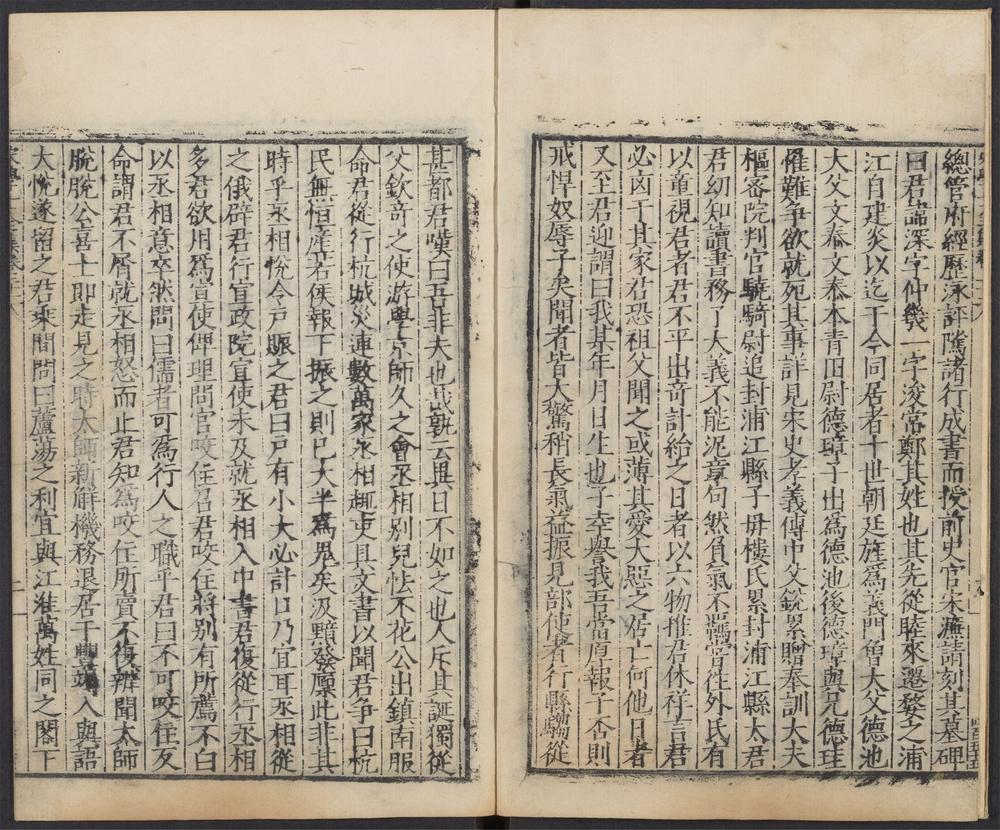 總管府經歷泳評隲諸行成書而授前史官宋濂請刻其墓碑
曰君諱深字仲幾一字浚常鄭其姓也其先從睦來遷婺之浦
江自建炎以迄于今同居者十世朝廷旌為義門曾大父德池
大父文泰文泰本青田尉德璋子出為德池後德璋與兄德珪
罹難爭欲就死其事詳見宋史孝義傳中父銳累贈奉訓大夫
樞密院判官驍騎尉追封浦江縣子毋樓氏累封浦江縣太君
君幼知讀書務了大義不能泥章句然負氣不羈嘗徃外氏有
以童視君者君不平出奇計紿之日者以六物推君休祥言君
必凶于其家君恐祖父聞之或薄其愛大惡之居亡何他日者
又至君迎謂曰我某年月日生也子幸譽我吾當厚報子否則
戒悍奴辱子矣聞者皆大驚稍長氣益振見部使者行縣騶從
甚都君嘆曰吾非夫也哉孰云異日不如之也人斥其誕獨從
父欽奇之使游學京師久之會丞相別兒怯不花公出鎮南服
命君從行杭城災連數萬家丞相趣吏具文書以聞君爭曰杭
民無恒產若俟報下振之則已大半為鬼矣汲黯發廩此非其
時乎丞相悅令戶賑之君曰戶有小大必計口乃宜耳丞相從
之俄辟君行宣政院宣使未及就丞相入中書君復從行丞相
多君欲用為宣使俾理問官咬住召君咬住將別有所薦不白
以丞相意卒然問曰儒者可為行人之職乎君曰不可咬住反
命謂君不屑就丞相怒而止君知為咬住所賣不復辨聞太師
脫脫公喜士即走見之時太師新解機務退居于
入與語
大悅遂留之君乘間問曰蘆蕩之利宜與江淮萬姓同之閤下